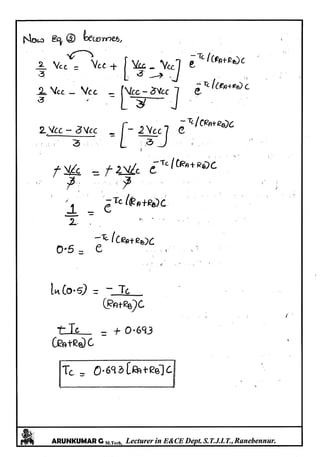 Now Eq ③ becomes,
2/3 Vcc = Vcc + [Vcc/3 - Vcc] e^-Tc/(RA+RB)C
2/3 Vcc - Vcc = [Vcc-3Vcc/3] e^-Tc/(RA+RB)C
2Vcc-3Vcc/3 = [-2Vcc/3] e^-Tc/(RA+RB)C
+Vcc/3 = +2Vcc/3 e^-Tc/(RA+RB)C
1/2 = e^-Tc/(RA+RB)C
0.5 = e^-Tc/(RA+RB)C
ln(0.5) = -Tc/(RA+RB)C
+Tc/(RA+RB)C = +0.693
Tc = 0.693[RA+RB]C
ARUNKUMAR G M.Tech, Lecturer in E&CE Dept. S.T.J.I.T., Ranebennur.